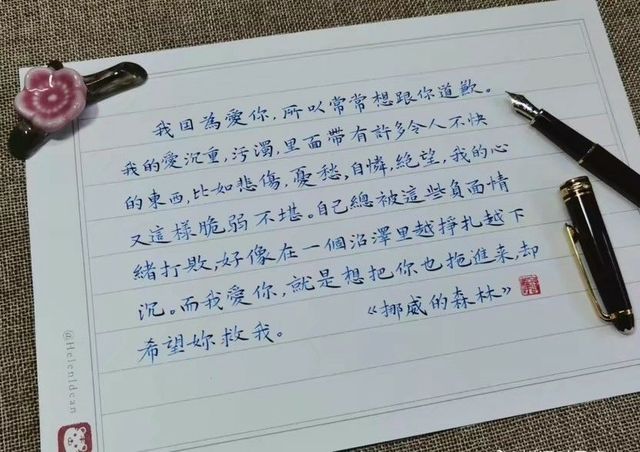 我因為愛你，所以常常想跟你道歉。
我的愛沉重，污濁，里面帶有許多令人不快
的東西，比如悲傷，憂愁，自憐，絕望，我的心
又這樣脆弱不堪。自己總被這些負面情
緒打敗，好像在一個沼澤里越掙扎越下
沉。而我愛你，就是想把你也拖進來，却
希望妳救我。 《挪威的森林》
@Helenldcan